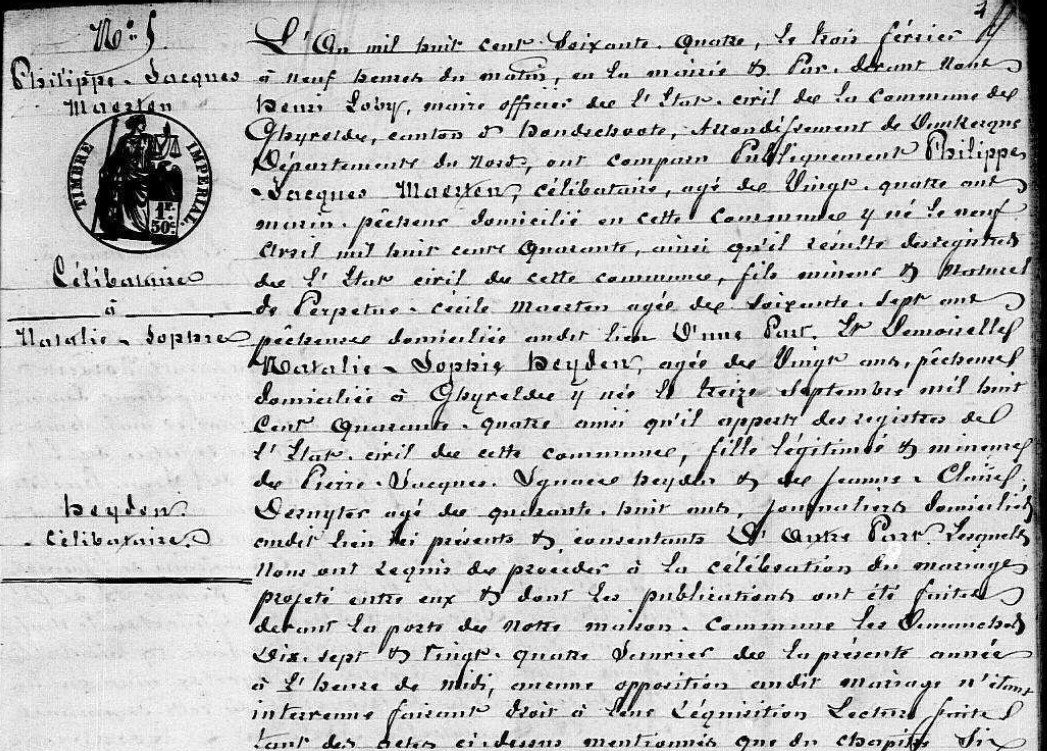 N° 5.
Philippe-Jacques
Maerten
TIMBRE IMPERIAL.
1 F.
50 C.
Célibataire
à
Natalie-Sophie
heyden.
Célibataire.
L'An mil huit cent Soixante-Quatre, le trois février
à neuf heures du matin, en la mairie & Par-devant Nous
henri Loby, maire officier de l'Etat-civil de la Commune de
Ghyvelde, canton d'hondschoote, Arrondissement de Dunkerque
Département du Nord, ont comparu Publiquement Philippe
-Jacques Maerten, célibataire, agé de Vingt-quatre ans
marin-pêcheur domicilié en cette Commune y né le neuf
Avril mil huit cent Quarante, ainsi qu'il résulte des registres
de l'Etat civil de cette commune, fils mineur & Naturel
de Perpetue-Cécile Maerten agée de Soixante-Sept ans
pêcheuse domiciliée audit lieu D'une Part, Et Demoiselle
Natalie-Sophie heyden, agée de Vingt ans, pêcheuse
domiciliée à Ghyvelde y née le treize Septembre mil huit
Cent Quarante-quatre ainsi qu'il appert des registres de
l'Etat-civil de cette commune, fille légitime & mineure
de Pierre-Jacques-Ignace heyden & de Jeanne-Claire
agé de quarante-huit ans, journaliers domiciliés
audit lieu ici présents & consentants D'Autre Part. Lesquels
Nous ont requis de procéder à la célébration du mariage
projeté entre eux & dont les publications ont été faites
devant la porte de notre maison-Commune les Dimanches
Dix-sept & Vingt-quatre Janvier de la présente année
à l'heure de midi, aucune opposition audit mariage n'étant
intervenue faisant droit à leur réquisition Lecture faite
tant des actes ci-dessus mentionnés que du chapitre Six